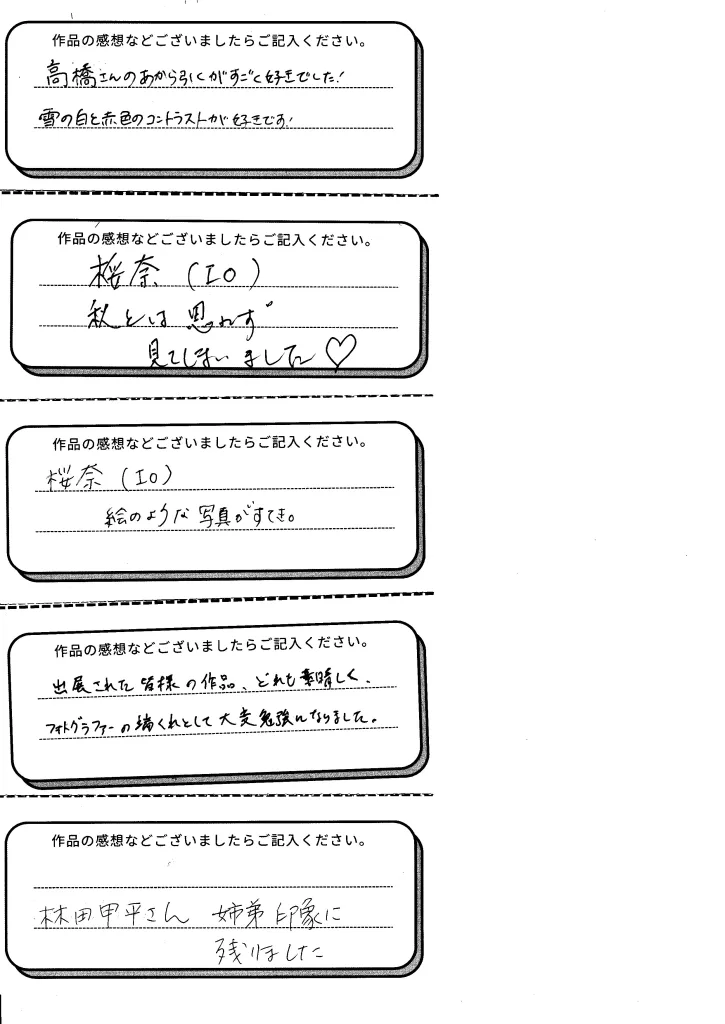 作品の感想などございましたらご記入ください。
高橋さんのあから引くがすごく好きでした!
雪の白と赤色のコントラストが好きです!
作品の感想などございましたらご記入ください。
桜奈(IO)
秋とは思れず
見てしまいました♡
作品の感想などございましたらご記入ください。
桜奈(IO)
絵のような写真がすてき。
作品の感想などございましたらご記入ください。
出展された皆様の作品、どれも素晴しく、
フォトグラファーの端くれとして大変勉強になりました。
作品の感想などございましたらご記入ください。
林田甲平さん 姉弟印象に
残りました